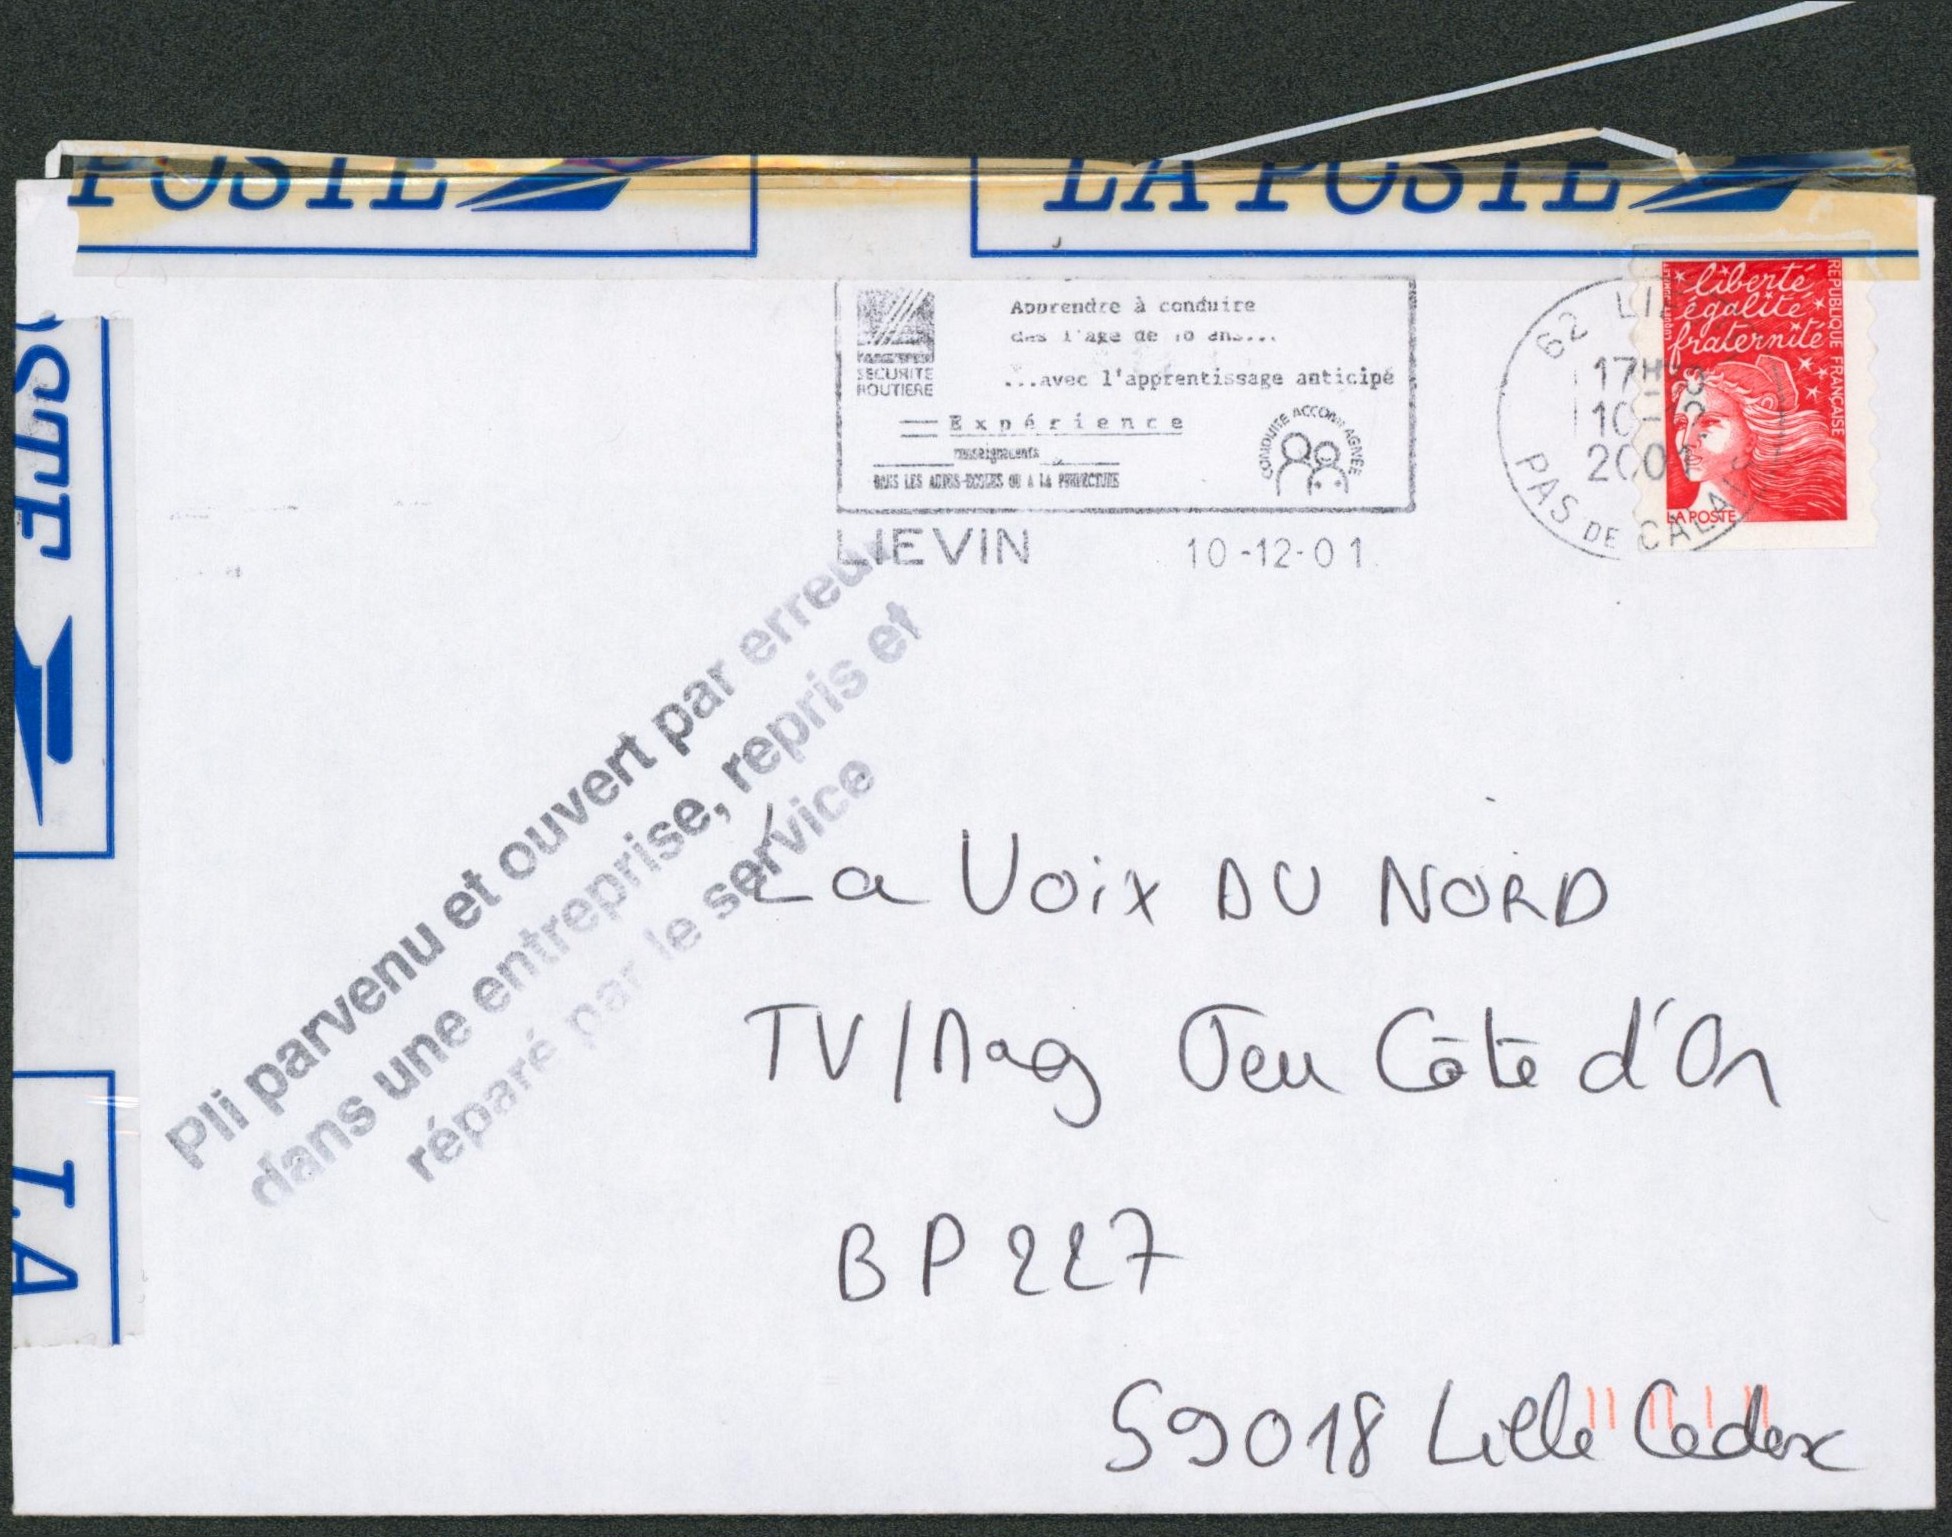 POSTE
LA POSTE
OSTE
LA
SECURITE
ROUTIERE
Apprendre à conduire
dès l'age de 16 ans...
...avec l'apprentissage anticipé
Expérience
renseignements
DANS LES AUTOS-ECOLES OU A LA PREFECTURE
CONDUITE ACCOMPAGNEE
LIEVIN
10-12-01
62
17H
10-12
2001
PAS DE CALAIS
liberté
égalité
fraternité
REPUBLIQUE FRANÇAISE
LA POSTE
Pli parvenu et ouvert par erreur
dans une entreprise, repris et
réparé par le service
La Voix DU NORD
TV/Mag Jeu Côté d'Or
BP 227
59018 Lille Cedex